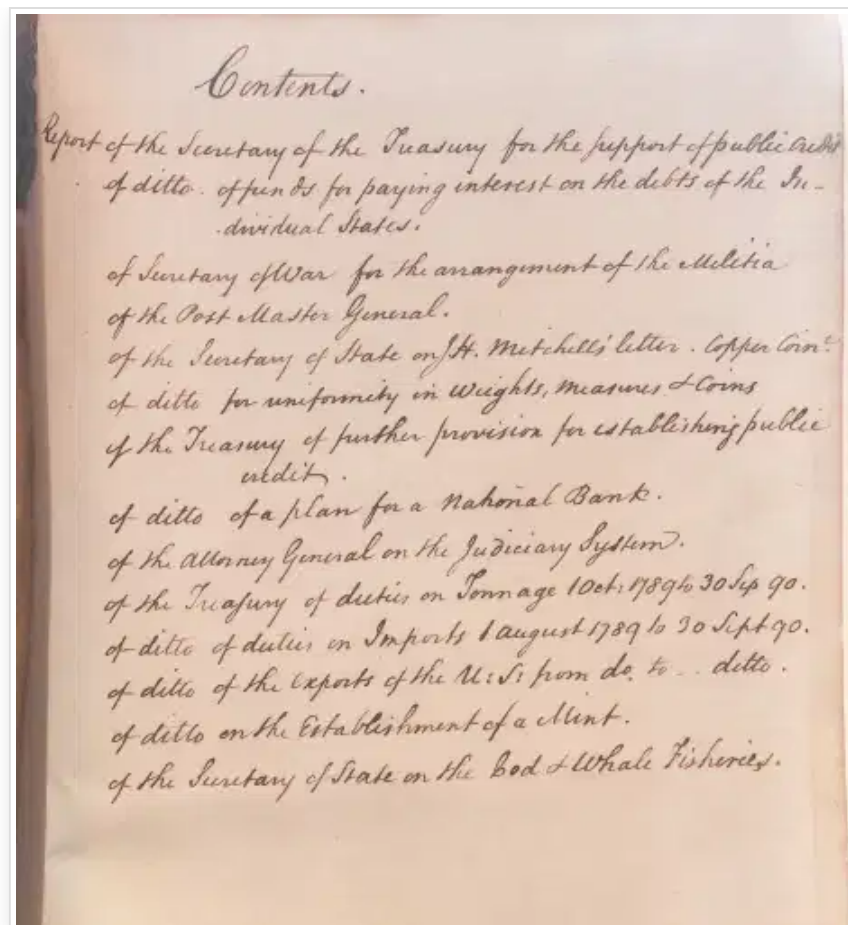 Contents.
Report of the Secretary of the Treasury for the support of public Credit
of ditto. of funds for paying interest on the debts of the In-
dividual States.
of Secretary of War for the arrangement of the Militia
of the Post Master General.
of the Secretary of State on J.H. Mitchell's letter. Copper Coin.
of ditto for uniformity in Weights, Measures & Coins
of the Treasury of further provision for establishing public
credit.
of ditto of a plan for a National Bank.
of the Attorney General on the Judiciary System.
of the Treasury of duties on Tonnage 1 Oct: 1789 to 30 Sep 90.
of ditto of duties on Imports 1 august 1789 to 30 Sept 90.
of ditto of the exports of the U: S: from do. to .. ditto.
of ditto on the Establishment of a Mint.
of the Secretary of State on the Cod & Whale Fisheries.